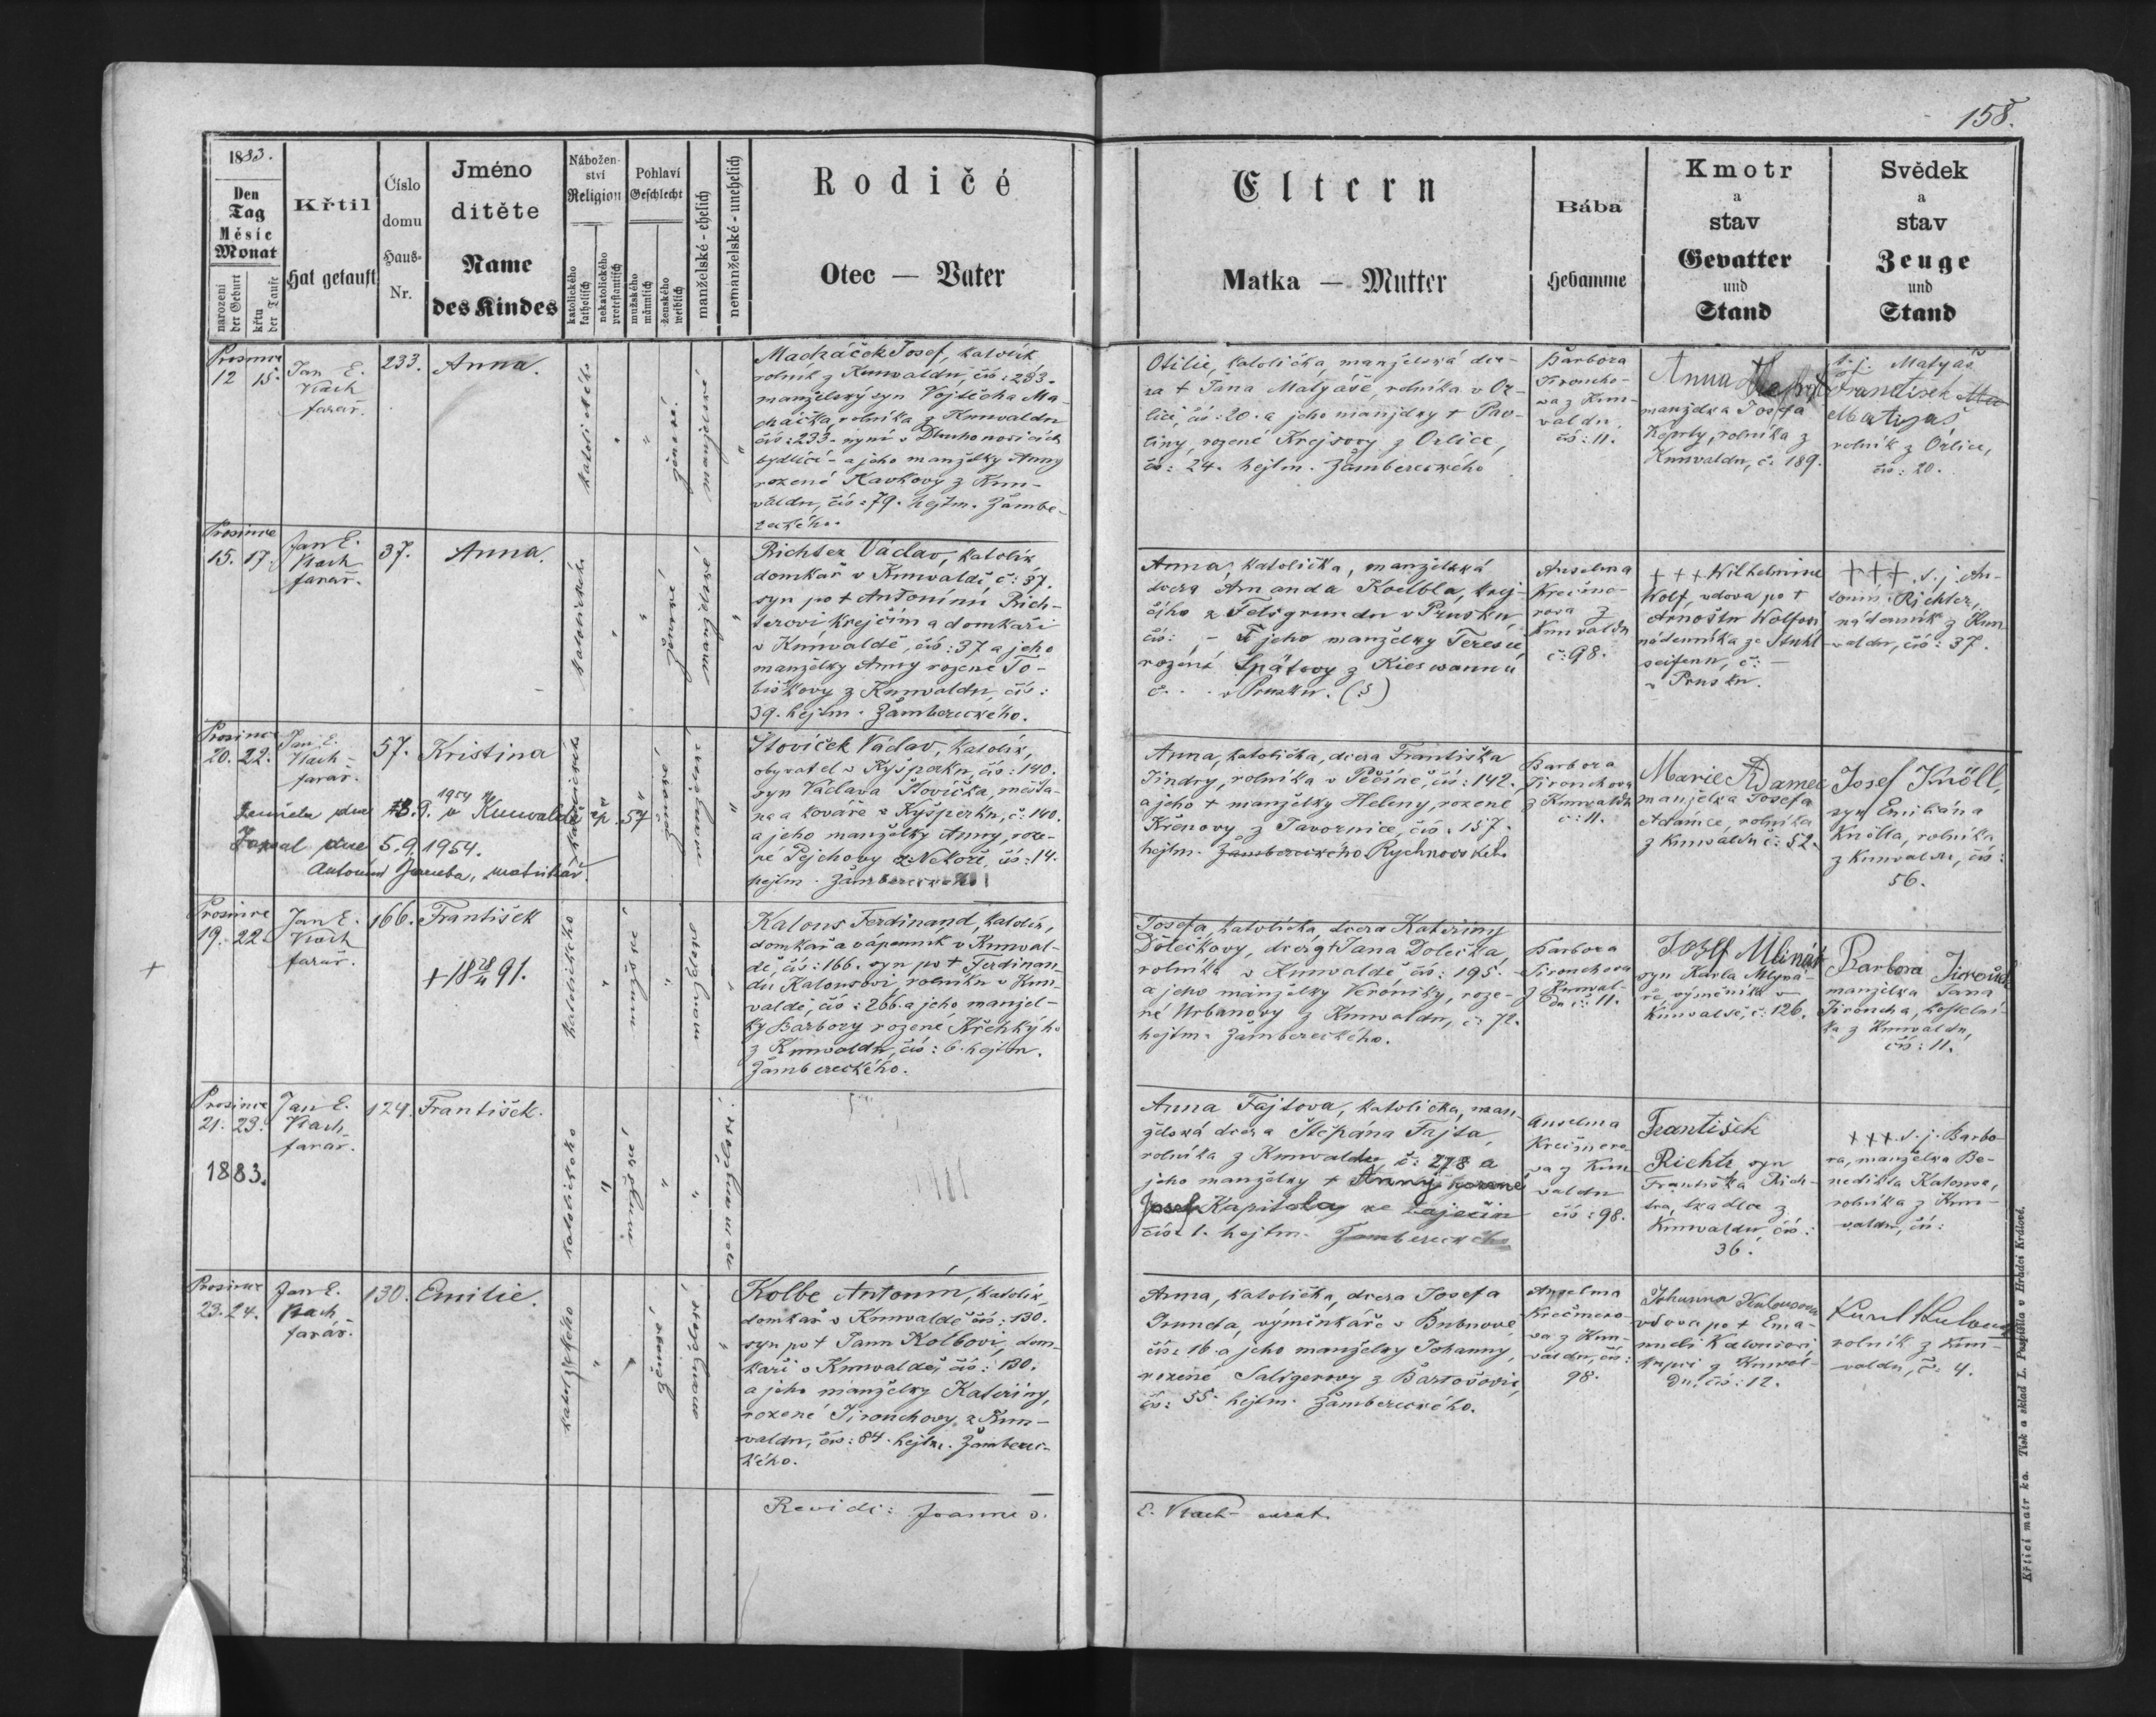 158.
1883.
Den
Tag
Měsíc
Monat
narození
der Geburt
křtu
der Taufe
Křtil
Hat getauft
Číslo
domu
Haus-
Nr.
Jméno
dítěte
Name
des Kindes
Nábožen-
ství
Religion
katolického
katholisch
nekatolického
protestantisch
Pohlaví
Geschlecht
mužského
männlich
ženského
weiblich
manželské - ehelich
nemanželské - unehelich
Rodičé
Otec — Vater
Eltern
Matka — Mutter
Bába
Hebamme
Kmotr
a
stav
Gevatter
und
Stand
Svědek
a
stav
Zeuge
und
Stand
Prosince
12 15.
Jan E.
Krach
farář.
233.
Anna.
katolického
"
"
ženské
manželské
"
Macháček Josef, katolík,
rolník z Kunvaldu, čís: 233.
manželský syn Vojtěcha Ma-
cháčka, rolníka z Kunvaldu
čís: 233 - nyní v Dlouhoňovicích
bydlící - a jeho manželky Anny
rozené Kavkovy z Kun-
valdu, čís: 79. hejtm. Žambe-
reckého.
Otilie, katolička, manželská dce-
ra + Jana Matyáše, rolníka v Or-
lici, čís: 20. a jeho manželky + Pav-
líny, rozené Krejsovy z Orlice,
čís: 24. hejtm. Žambereckého
Barbora
Jirouchova
z Kun-
valdu,
čís: 11.
Anna
manželka Josefa
Keprty, rolníka z
Kunvaldu, č. 189.
t. j. Matyáš
František
Matyaš
rolník z Orlice,
čís: 20.
Prosince
15. 17.
Jan E.
Krach
farář.
37.
Anna.
katolického
"
"
ženské
manželské
"
Richter Václav, katolík
domkář v Kunvaldě č: 37.
syn po + Antonínu Rich-
terovi krejčím a domkáři
v Kunvaldě, čís: 37 a jeho
manželky Anny rozené To-
biškovy z Kunvaldu čís:
39. hejtm. Žambereckého.
Anna, katolička, manželská
dcera Amanda Koelbla, krej-
čího z Felsgrundu v Prusku
čís: - a jeho manželky Teresie,
rozené Spätovy z Kieswannu
č. . v Prusku. (§)
Anselma
Krečmerova
z
Kunvaldu
č: 98.
+++ Wilhelmine
Wolf, vdova po +
Arnoštu Wolfovi
nádenníka ze Stuhl
seifenu, č: -
v Prusku.
+++ s. j. An-
tonín Richter,
nádenník z Kun
valdu, čís: 37.
Prosince
20. 22.
Jan E.
Krach
farář.
57.
Kristina
Zemřela dne 3. 9. 1954 v Kunvaldě čp. 57
Zapsal dne 5. 9. 1954.
Antonín Jareuba, matrikář.
katolického
"
ženské
manželské
"
Šťovíček Václav, katolík,
obyvatel v Kyšperku, čís: 140.
syn Václava Šťovíčka, měšťa-
na a kováře v Kyšperku, č: 140.
a jeho manželky Anny, roze-
né Pejchovy z Nekoře, čís: 14.
hejtm. Žambereckého
Anna, katolička, dcera Františka
Jindry, rolníka v Pěčíně, čís: 142.
a jeho + manželky Heleny, rozené
Křenovy z Javornice, čís: 157.
hejtm. Žambereckého Rychnovského
Barbora
Jirouchova
z Kunvaldu
č: 11.
Marie Adamec
manželka Josefa
Adamce, rolníka
z Kunvaldu č: 52.
Josef Knöll,
syn Emiliána
Knölla, rolníka
z Kunvaldu, čís:
56.
Prosince
19. 22.
Jan E.
Krach
farář.
166.
František
+
+ 18 28/11 91.
katolického
"
mužské
"
manželské
Kalous Ferdinand, katolík,
domkář a vápenník v Kunval-
dě, čís: 166. syn po + Ferdinan-
du Kalousovi, rolníku v Kun-
valdě, čís: 266. a jeho manžel-
ky Barbory rozené Křehkýho
z Kunvaldu, čís: 6. hejtm.
Žambereckého.
Josefa, katolička, dcera Kateřiny
Dolečkovy, dcery + Jana Dolečka,
rolníka v Kunvaldě čís: 195.
a jeho manželky Veroniky, roze-
né Urbanovy z Kunvaldu, č: 72.
hejtm. Žambereckého.
Barbora
Jirouchova
z Kunval-
du č: 11.
Josef Mlinář
syn Karla Mlyná-
ře, výměnkáře v
Kunvaldě, č: 126.
Barbora Jirouch
manželka Jana
Jiroucha, kostelní-
ka z Kunvaldu,
čís: 11.
Prosince
21. 23.
1883.
Jan E.
Krach
farář.
124.
František.
katolického
"
mužské
"
"
nemanželské.
Anna Fajtova, katolička, man-
želská dcera Štěpána Fajta,
rolníka z Kunvaldu, č: 278 a
jeho manželky + Anny rozené
Josef Kapitola ze Zaječin
čís: 1. hejtm. Žambereckého
Anselma
Krečmero-
va z Kun
valdu
čís: 98.
František
Richtr, syn
Františka Rich-
tra, tkadlce z
Kunvaldu, čís:
36.
+++ s. j. Barbo-
ra, manželka Be-
nedikta Kalouse,
rolníka z Kun-
valdu, čís:
Prosince
23. 24.
Jan E.
Krach
farář.
130.
Emilie.
katolického
"
"
ženské
manželské
"
Kolbe Antonín, katolík,
domkář v Kunvaldě čís: 130.
syn po + Janu Kolbovi, dom-
káři v Kunvaldě, čís: 130.
a jeho manželky Kateřiny,
rozené Jirouchovy z Kun-
valdu, čís: 84. hejtm. Žamberec-
kého.
Anna, katolička, dcera Josefa
Grunda, výměnkáře v Bubnově
čís: 16 a jeho manželky Johanny,
rozené Salsgerovy z Bartošovic,
čís: 55. hejtm. Žambereckého.
Anselma
Krečmero-
va z Kun-
valdu, čís:
98.
Johanna Kalousova
vdova po + Ema-
nueli Kalousovi,
kupci z Kunval-
du, čís: 12.
Karel Kalous
rolník z Kun-
valdu, č: 4.
Revidi: Joannes.
E. Krach curat.
Křticí matrika. Tisk a sklad L. Pospíšila v Hradci Králové.